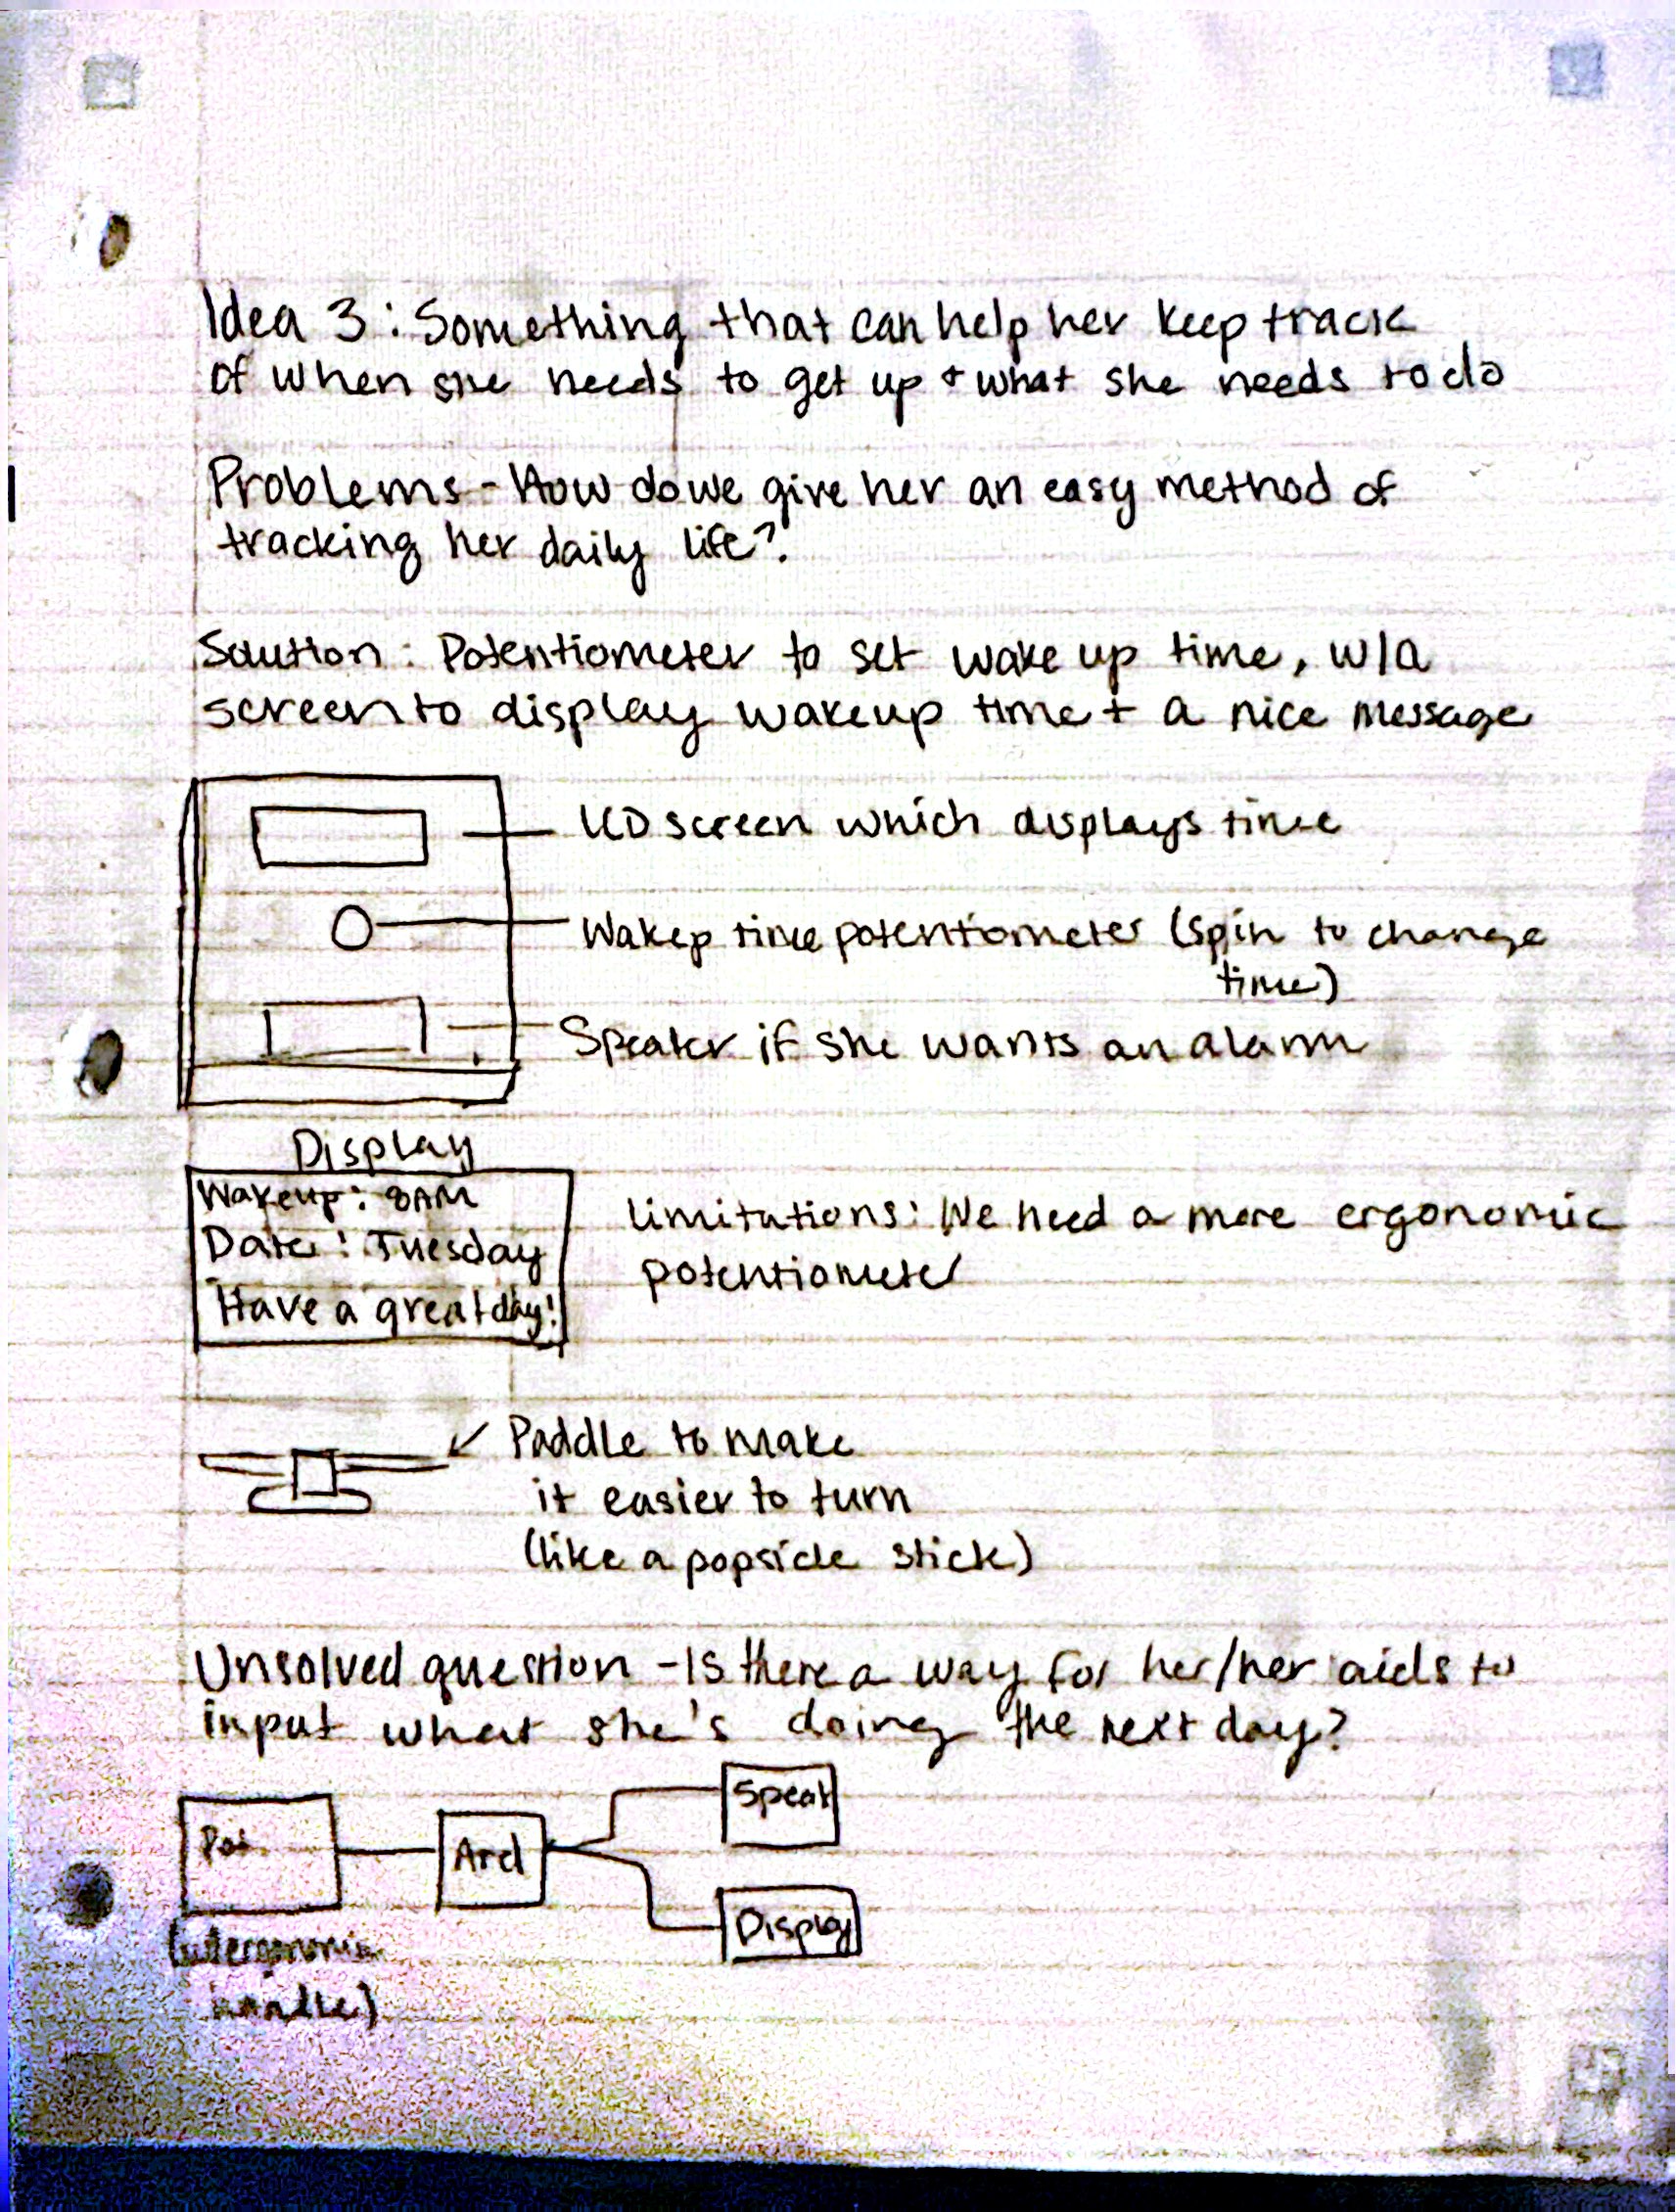 Idea 3: Something that can help her keep track
of when she needs to get up + what she needs to do
Problems - How do we give her an easy method of
tracking her daily life?
Solution: Potentiometer to set wake up time, w/a
screen to display wakeup time + a nice message
LCD screen which displays time
Wakep time potentiometer (spin to change
time)
Speaker if she wants an alarm
Display
Wakeup: 8AM
Date: Tuesday
Have a great day!
limitations: We need a more ergonomic
potentiometer
Paddle to make
it easier to turn
(like a popsicle stick)
Unsolved question - Is there a way for her/her aids to
input what she's doing the next day?
Pot
Ard
Speak
Display
handle)